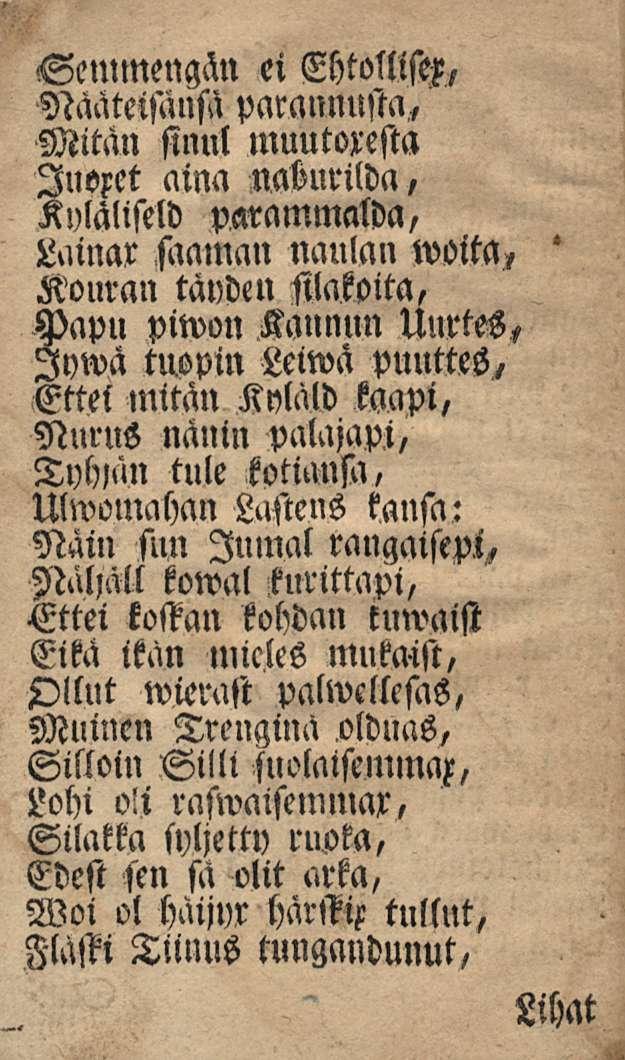 Semmengän ei Ehtollisex,
Nääteisänsä parannusta,
Mitän sinul muutoxesta
Juoxet aina naburilda,
Kyläliseld parammalda,
Lainax saaman naulan woita,
Kouran täyden silakoita,
Papu piwon Kaunun Uurtes,
Jywä tuopin Leiwä puuttes,
Ettei mitän Kyläld kaapi,
Nurus näuin palajapi,
Tyhjän tule kotiansa,
Ulwomahan Lastens kansa:
Näin sun Jumal rangaisepi,
Näljäll kowal kurittapi,
Ettei koskan kohdan kuwaist
Eikä ikän mieles mukaist,
Ollut wierast palwellesas,
Muinen Trenginä olduas,
Silloin Silli suolaisemmax,
Lohi oli raswaisemmax,
Silakka syljetty ruoka,
Edest sen sä olit arka,
Woi ol häijyx härskix tullut,
Fläski Tiinus tungandunut,
Lihat